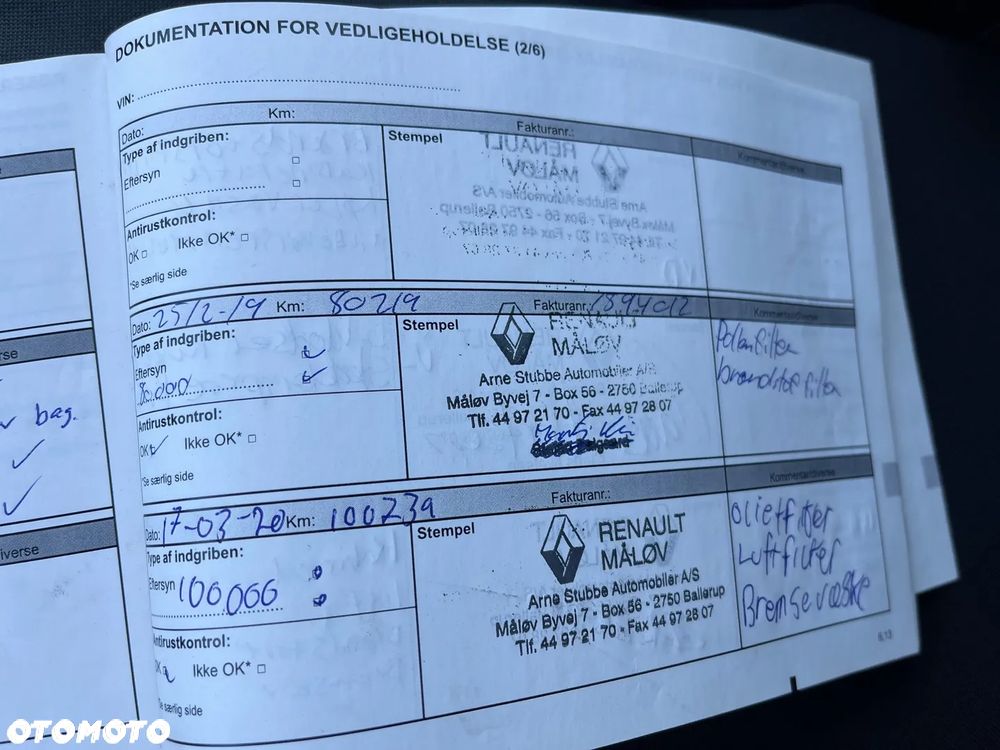 DOKUMENTATION FOR VEDLIGEHOLDELSE (2/6)
VIN:
Dato: Km: Fakturanr.:
Type af indgriben:
Eftersyn
Antirustkontrol:
OK Ikke OK*
*Se særlig side
Stempel
RENAULT
MÅLØV
Arne Stubbe Automobiler A/S
Måløv Byvej 7 - Box 56 - 2750 Ballerup
Tlf. 44 97 21 70 - Fax 44 97 28 07
Kommentar/diverse
Dato: 25/2-19 Km: 80219 Fakturanr. 1894012
Type af indgriben:
Eftersyn
80.000
Antirustkontrol:
OK Ikke OK*
*Se særlig side
Stempel
RENAULT
MÅLØV
Arne Stubbe Automobiler A/S
Måløv Byvej 7 - Box 56 - 2750 Ballerup
Tlf. 44 97 21 70 - Fax 44 97 28 07
Kommentar/diverse
Pollenfilter
brændstof filter
Dato: 17-03-20 Km: 100239 Fakturanr.:
Type af indgriben:
Eftersyn 100.000
Antirustkontrol:
OK Ikke OK*
*Se særlig side
Stempel
RENAULT
MÅLØV
Arne Stubbe Automobiler A/S
Måløv Byvej 7 - Box 56 - 2750 Ballerup
Tlf. 44 97 21 70 - Fax 44 97 28 07
Kommentar/diverse
Olieffilter
Luftfilter
Bremsevæske
6.13
bag.
OTOMOTO